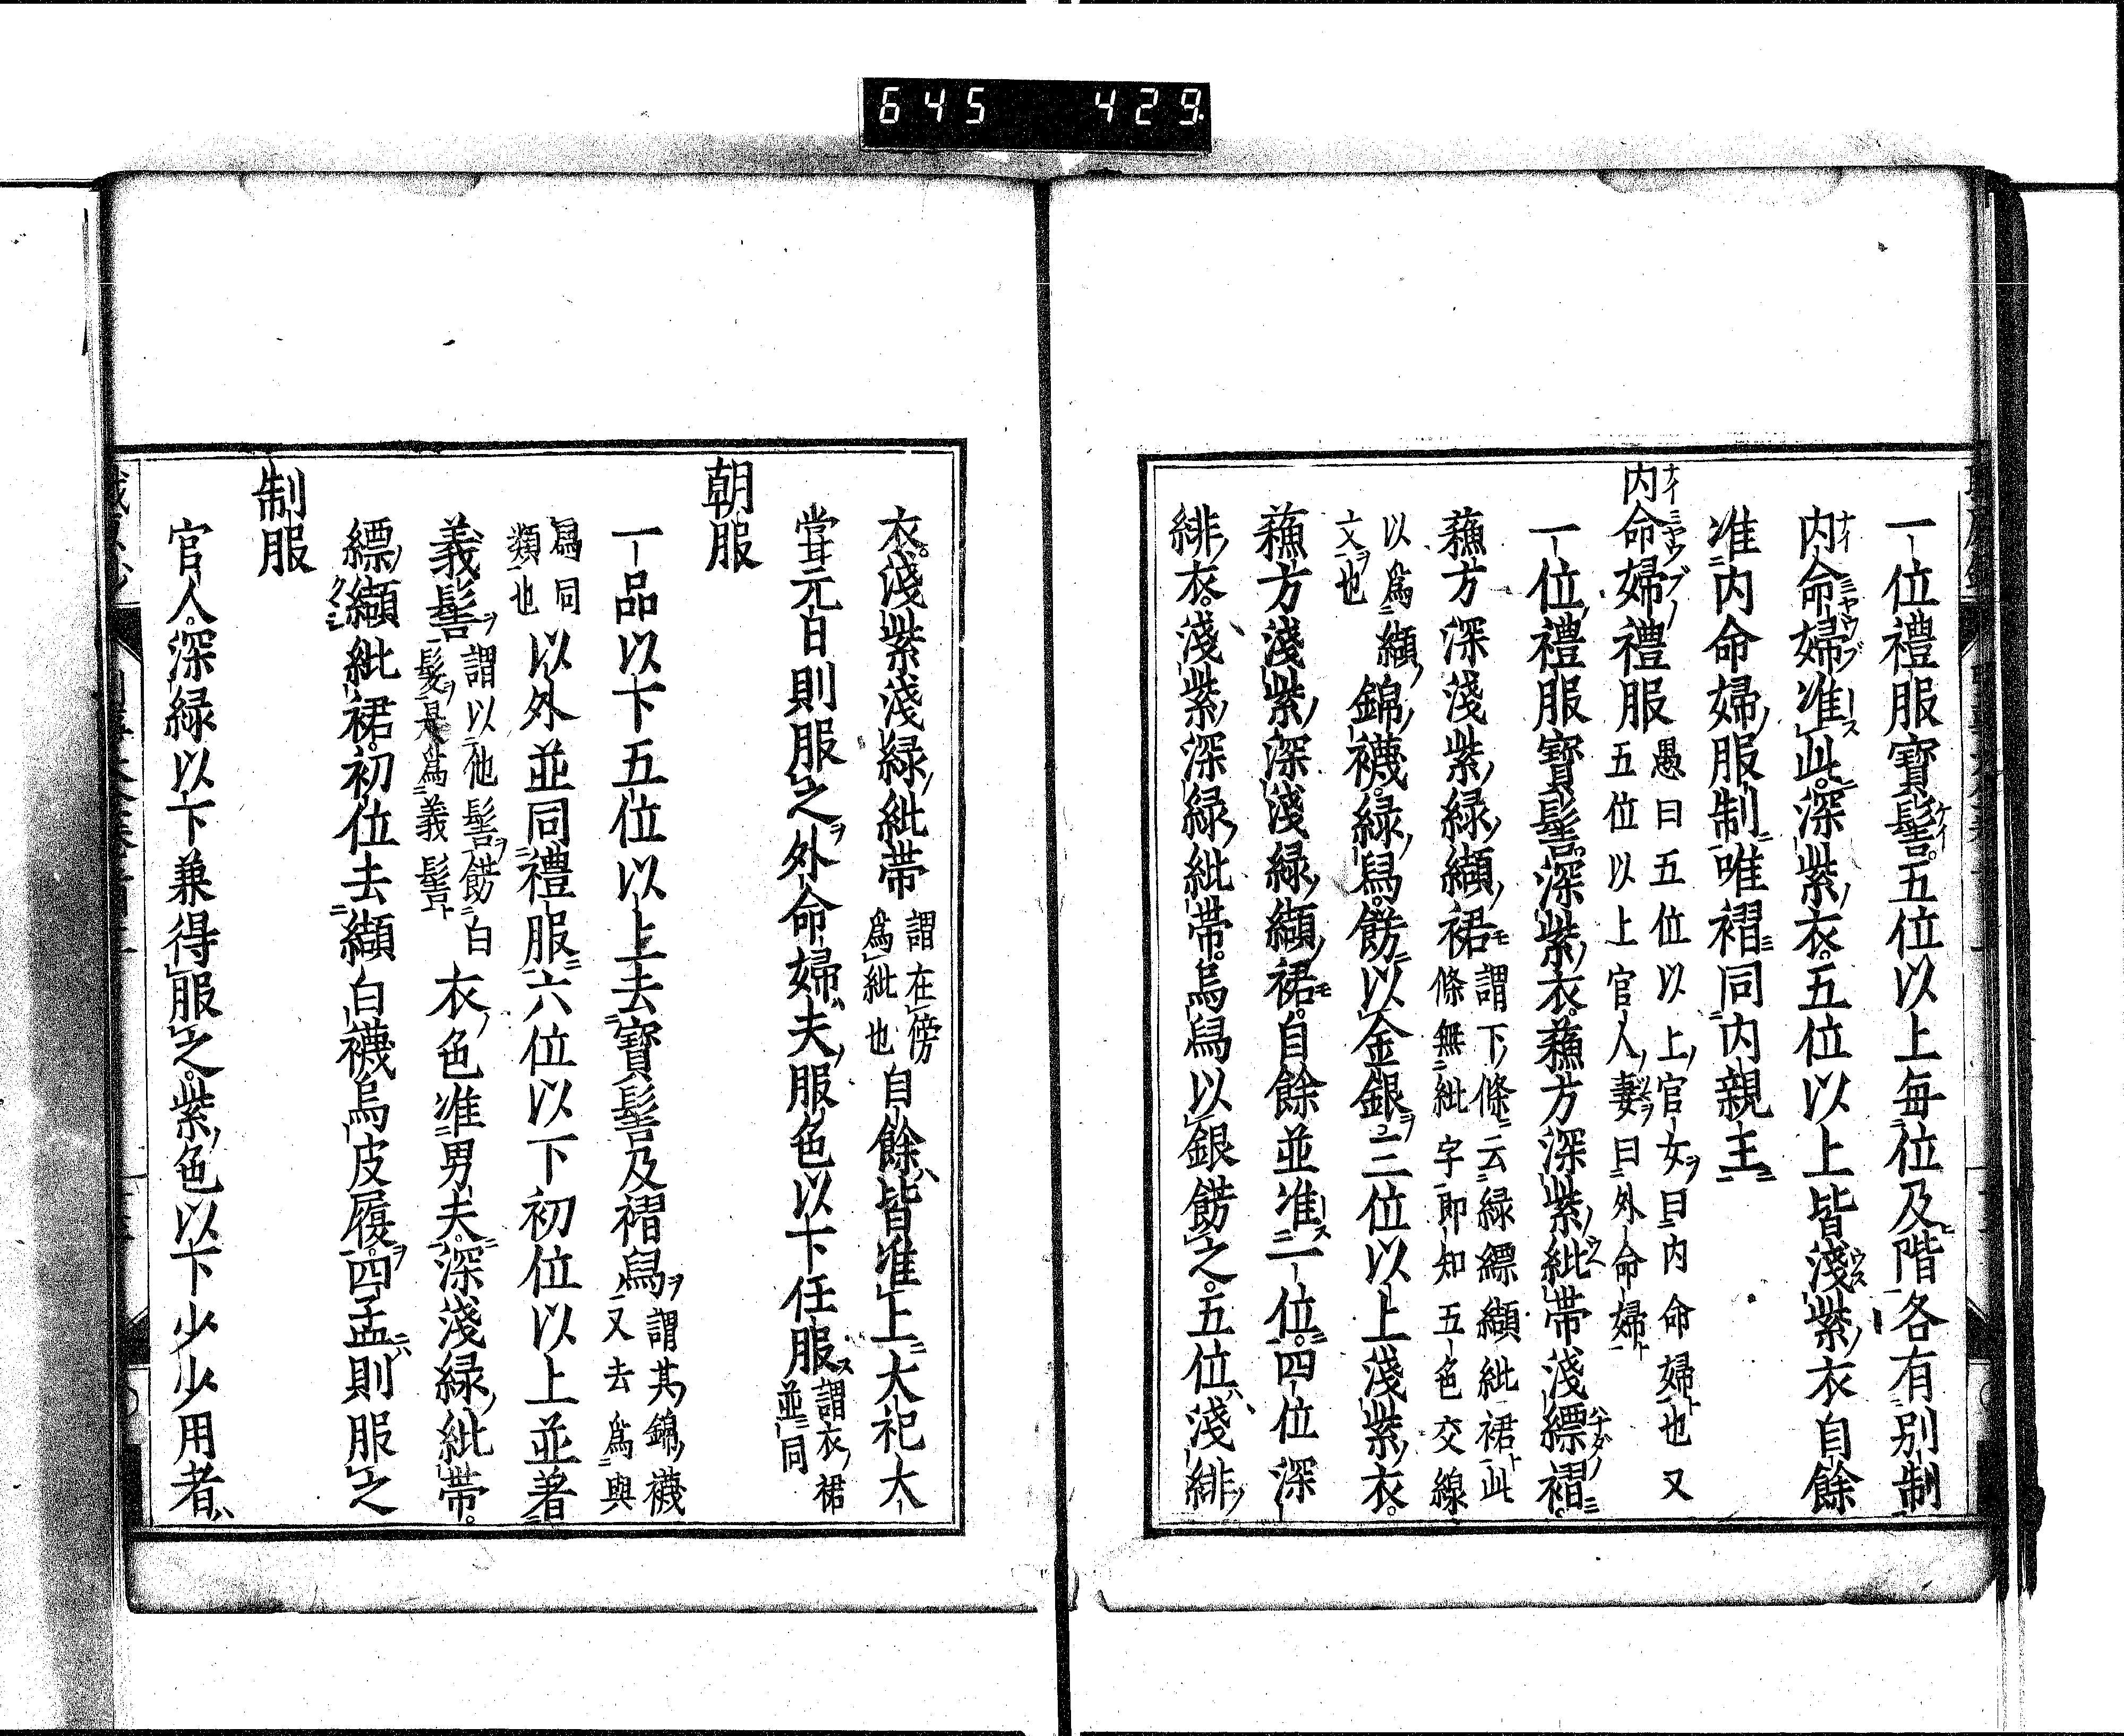 645 429
一位禮服寶髻五位以上每位及階各有別制
内命婦准此深紫衣五位以上皆淺紫衣自餘
准内命婦服制唯褶同内親王
内命婦禮服
愚曰五位以上官女曰内命婦也又
五位以上官人妻曰外命婦
一位禮服寶髻深紫衣蘓方深紫紕帶淺縹褶
蘓方深淺紫綠纈裙
謂下條云綠縹纈紕裙此
條無紕字即知五色交線
以爲
文也
纈錦襪綠舃餝以金銀三位以上淺紫衣
蘓方淺紫深淺綠纈裙自餘並准一位四位深
緋衣淺紫深綠紕帶烏舃以銀餝之五位淺緋
衣淺紫淺綠紕帶
謂在傍
爲紕也
自餘皆准上大祀大
甞元日則服之外命婦夫服色以下任服
謂衣裙
並同
朝服
一品以下五位以上去寶髻及褶舃
謂其錦襪
又去爲與
舃同
類也
以外並同禮服六位以下初位以上並著
義髻
謂以他髻餝白
髮是爲義髻
衣色准男夫深淺綠紕帶
縹纈紕裙初位去纈白襪烏皮履四孟則服之
制服
官人深緑以下兼得服之紫色以下少少用者